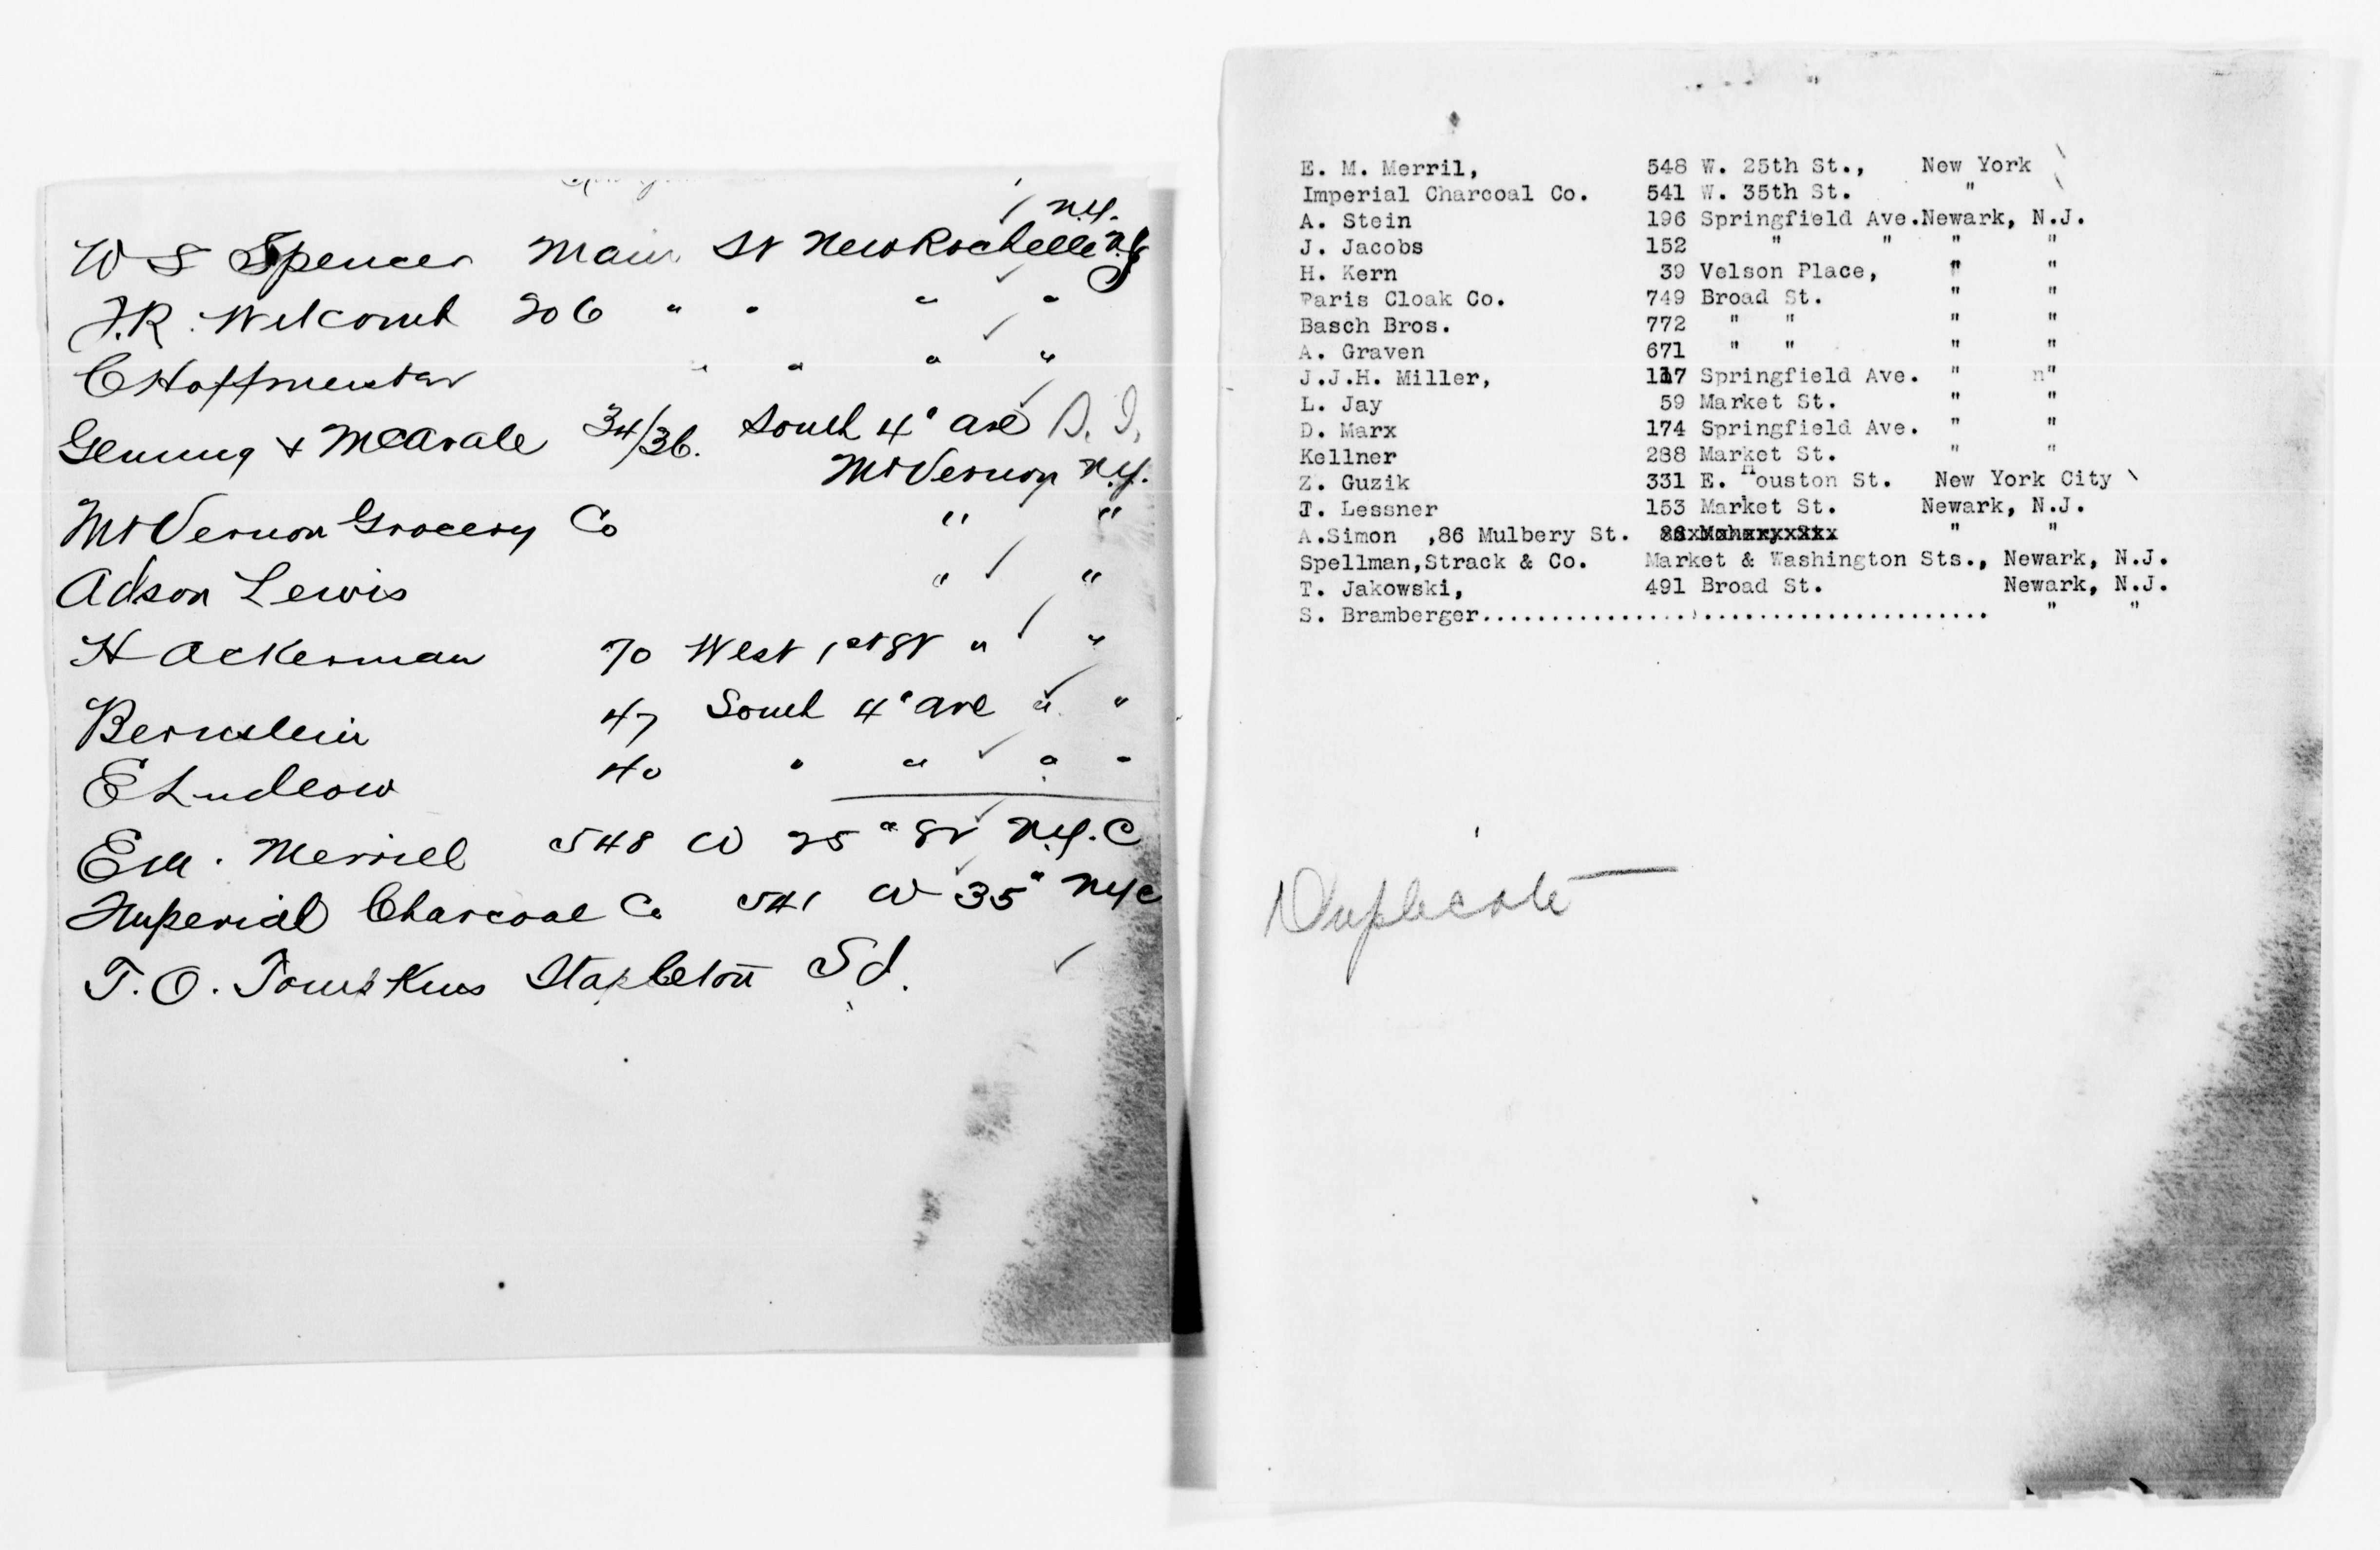 N.Y.
W S Spencer Main St New Rochelle N.Y.
F.R. Welcomb 206 " " " "
C Hoffmeister " " " "
Genung & McArdle 34/36. South 4" ave
Mt Vernon N.Y.
Mt Vernon Grocery Co " "
Adson Lewis " "
H Ackerman 70 West 1st St " "
Bernstein 47 South 4" ave " "
E Ludlow 40 " " " "
E M. Merrill 548 W 25" St N.Y.C
Imperial Charcoal Co 541 W 35" NYC
T.O. Tompkins Stapleton S I.
E. M. Merril, 548 W. 25th St., New York
Imperial Charcoal Co. 541 W. 35th St. "
A. Stein 196 Springfield Ave.Newark, N.J.
J. Jacobs 152 " " " "
H. Kern 39 Velson Place, " "
Paris Cloak Co. 749 Broad St. " "
Basch Bros. 772 " " " "
A. Graven 671 " " " "
J.J.H. Miller, 117 Springfield Ave. " n"
L. Jay 59 Market St. " "
D. Marx 174 Springfield Ave. " "
Kellner 288 Market St. " "
Z. Guzik 331 E. Houston St. New York City
T. Lessner 153 Market St. Newark, N.J.
A.Simon ,86 Mulbery St. " "
Spellman,Strack & Co. Market & Washington Sts., Newark, N.J.
T. Jakowski, 491 Broad St. Newark, N.J.
S. Bramberger..................................... " "
Duplicate